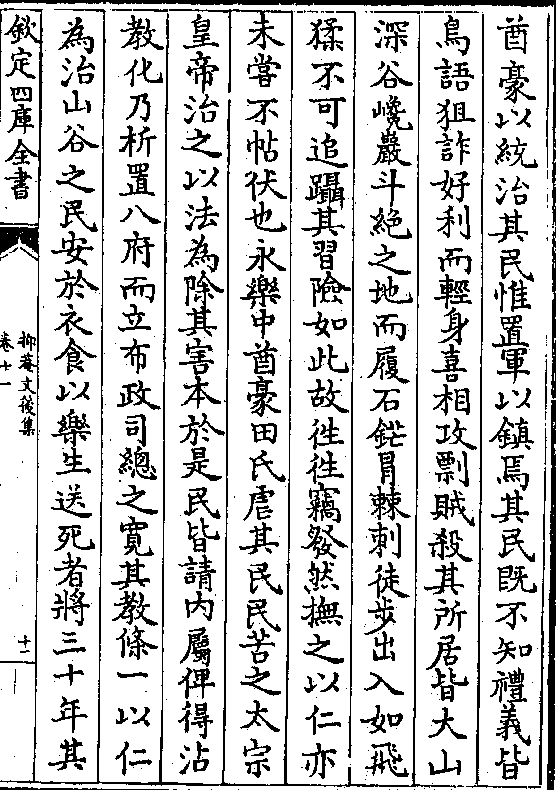 酋豪以統治其民惟置軍以鎮焉其民既不知禮義皆
鳥語狙詐好利而輕身喜相攻剽賊殺其所居皆大山
深谷巉巖斗絕之地而履石鋩冐棘刺徒步出入如飛
猱不可追躡其習險如此故徃徃竊發然撫之以仁亦
未嘗不帖伏也永樂中酋豪田氏虐其民民苦之太宗
皇帝治之以法為除其害本於是民皆請内屬俾得沾
教化乃析置八府而立布政司總之寛其教條一以仁
為治山谷之民安於衣食以樂生送死者將三十年其
欽定四庫全書
抑菴文後集
卷十一
十二